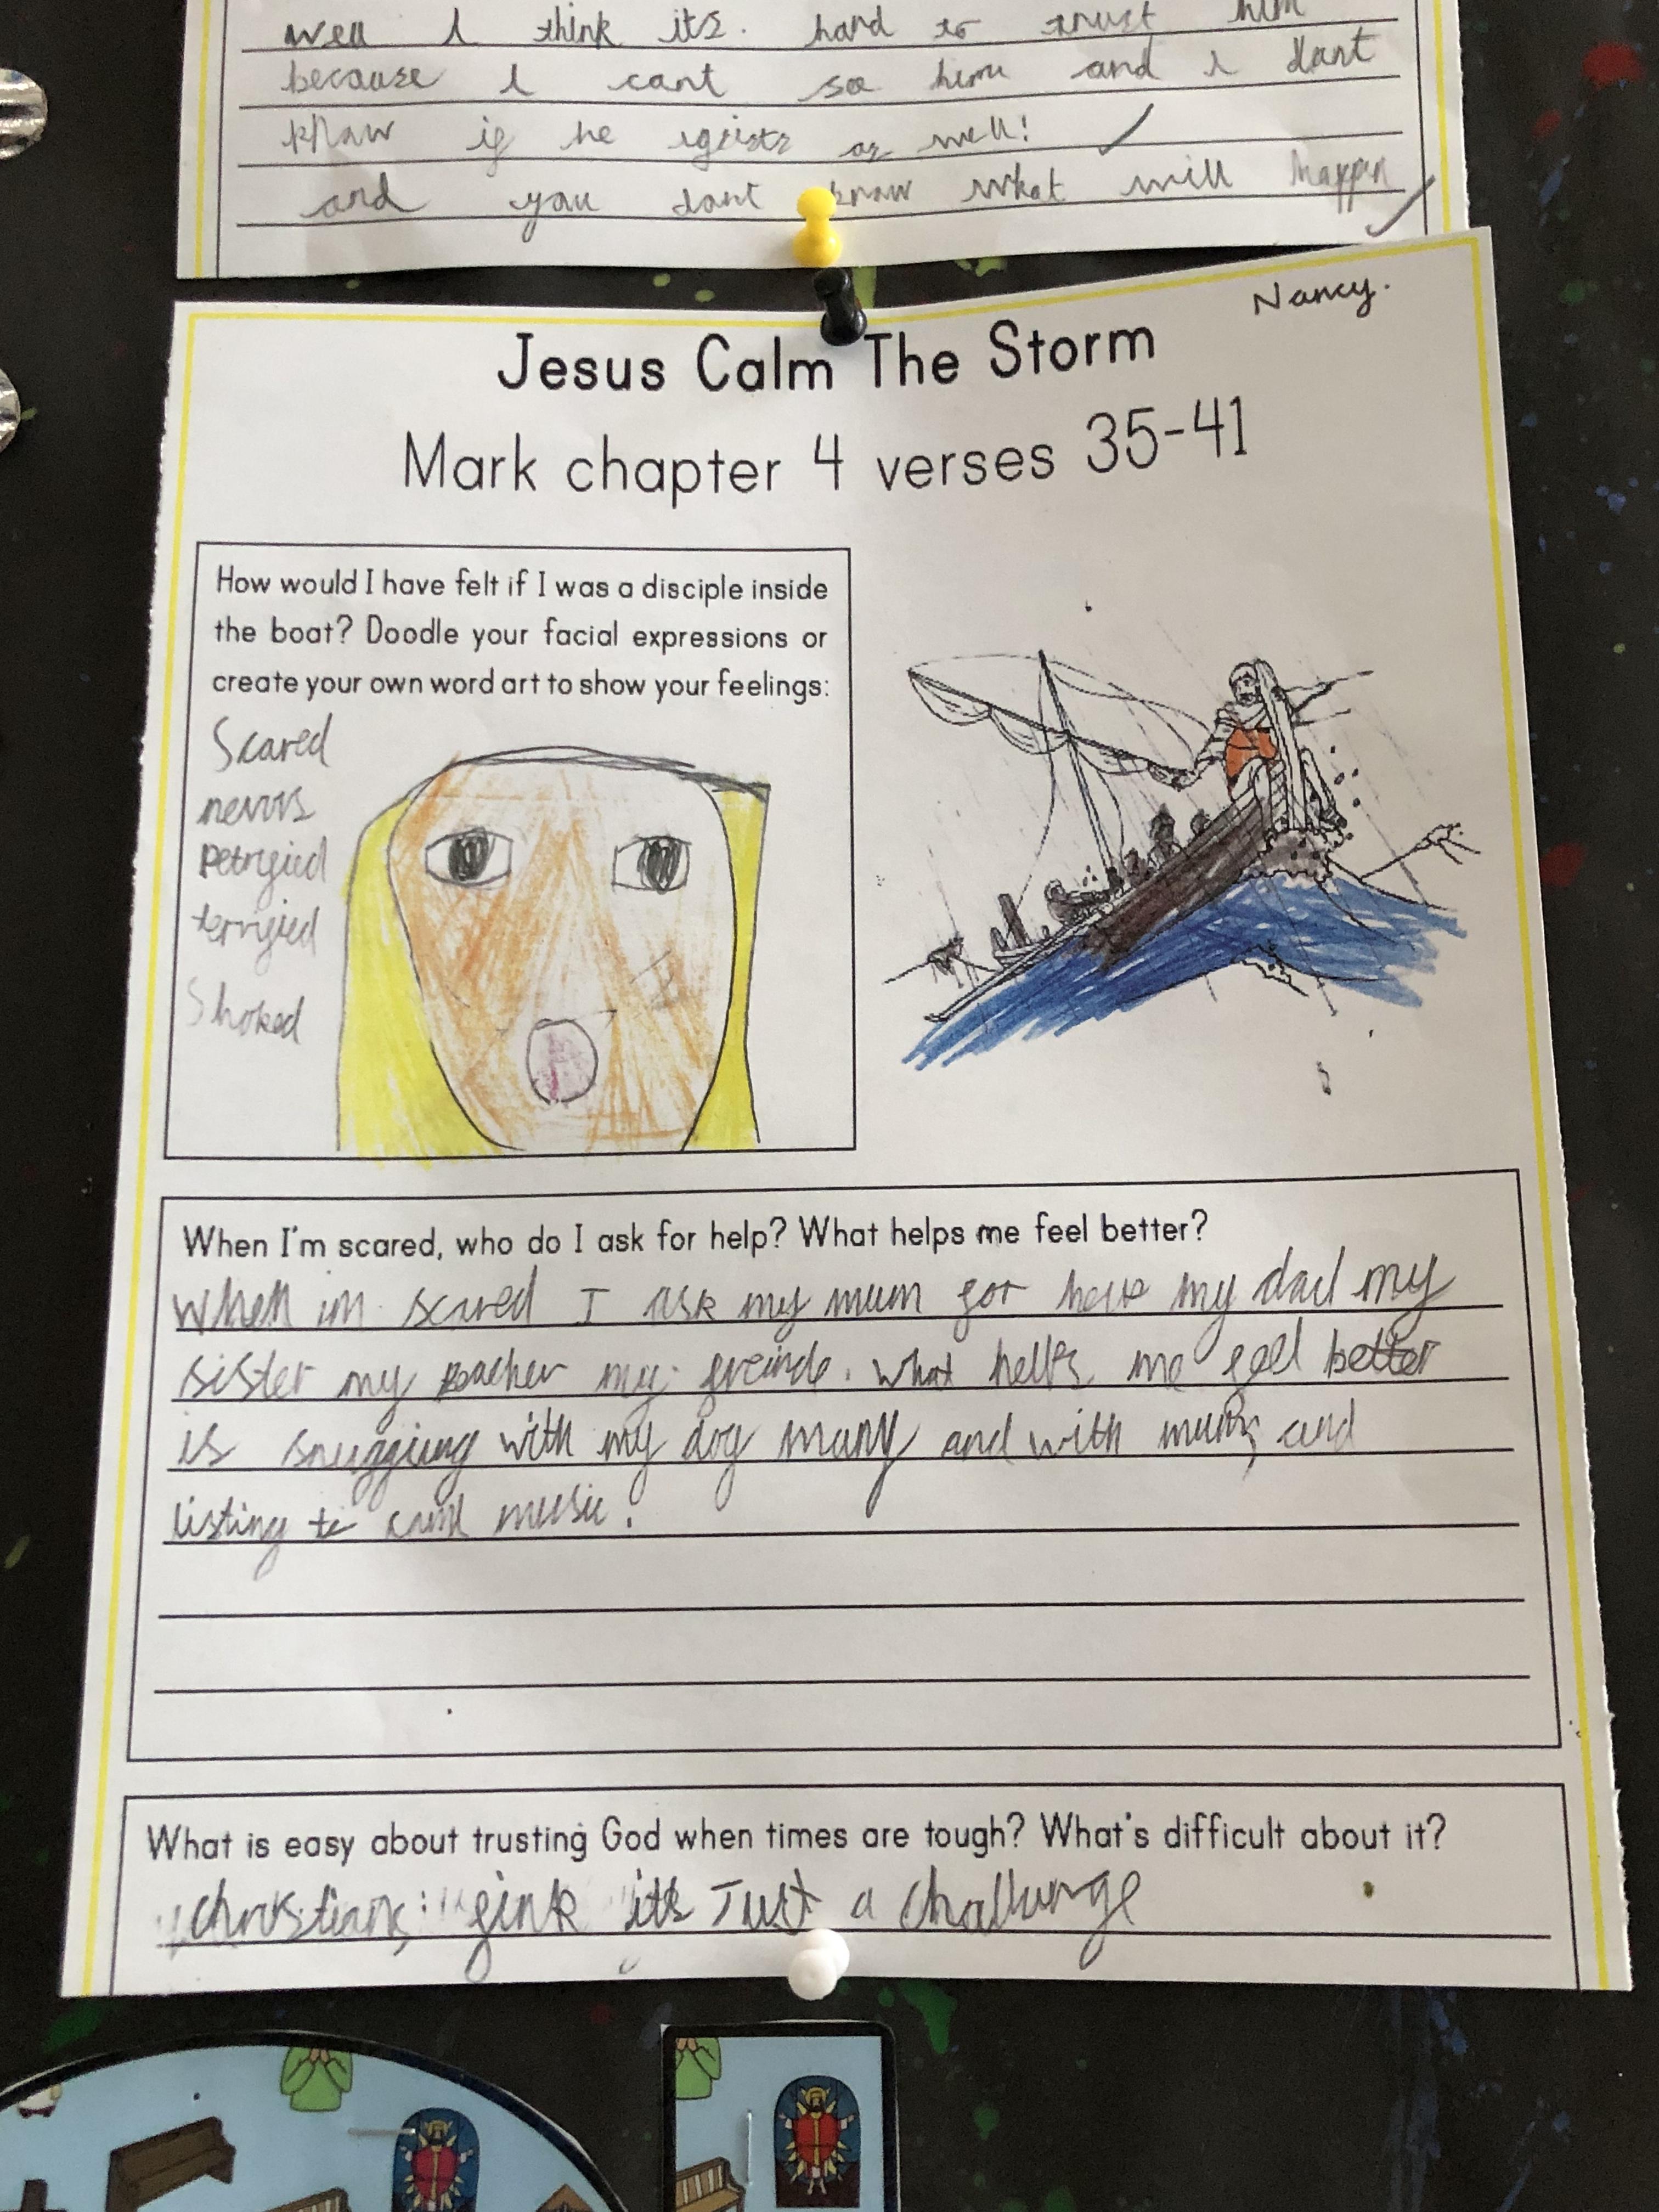 well I think its. hard to trust him
because I cant se him and I dont
know if he igsists or well!
and you dont know what will happen
Nancy.
Jesus Calm The Storm
Mark chapter 4 verses 35-41
How would I have felt if I was a disciple inside
the boat? Doodle your facial expressions or
create your own word art to show your feelings:
Scared
nervis
petryied
terryied
Shoked
When I'm scared, who do I ask for help? What helps me feel better?
When im scared I ask my mum for help my dad my
sister my teacher my freinds. What helps me feel better
is snuggling with my dog and with mum, and
listing to calm music.
What is easy about trusting God when times are tough? What's difficult about it?
christians fink its Just a challunge